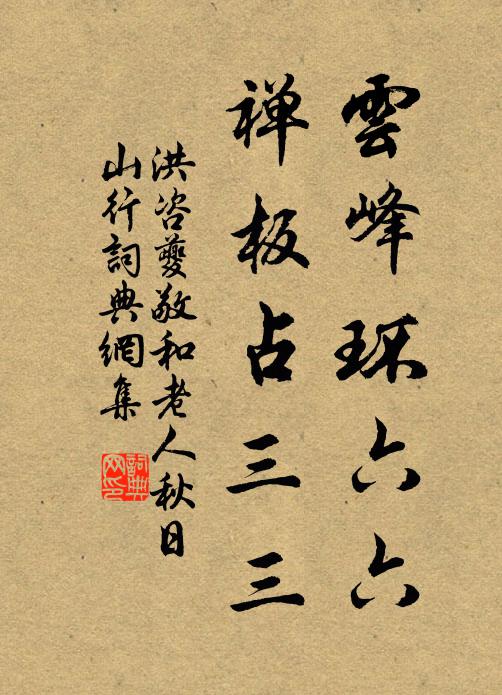 雲峰环六六
禅板占三三
洪咨夔敬和老人秋日
山行詞典網集
詞典
网印